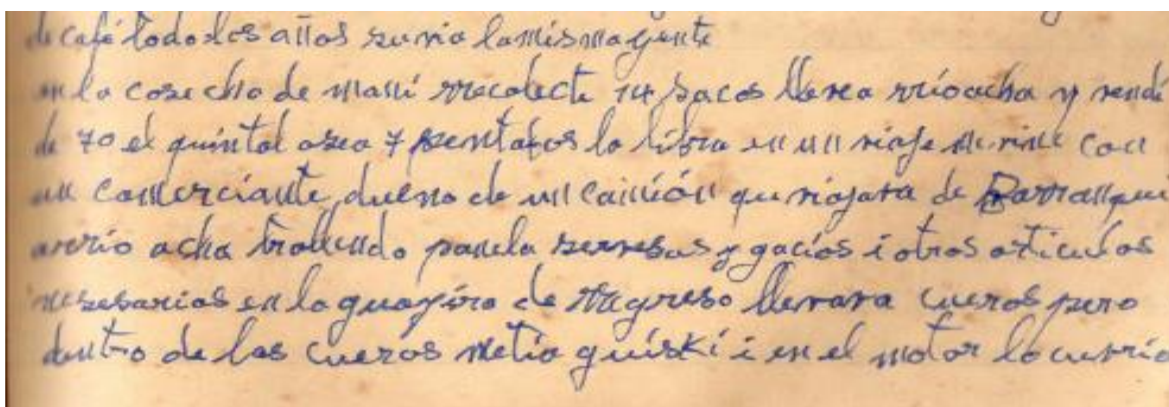 de café todo los años suvia lamisma gente
en la cosecha de maní rrecolecte 14 sacos lleve a rrioacha y vendi
de 70 el quintal asea 7 sentafos la libra en un viaje me vine con
un comerciante, dueno de un camión que viajava de Barranqui
arrio acha trallendo panela servesas y gacíos i otros articulos
nesesarios en la guagira de rregreso llevava cueros pero
dentro de los cueros metia guiski i en el motor lo cuvrio